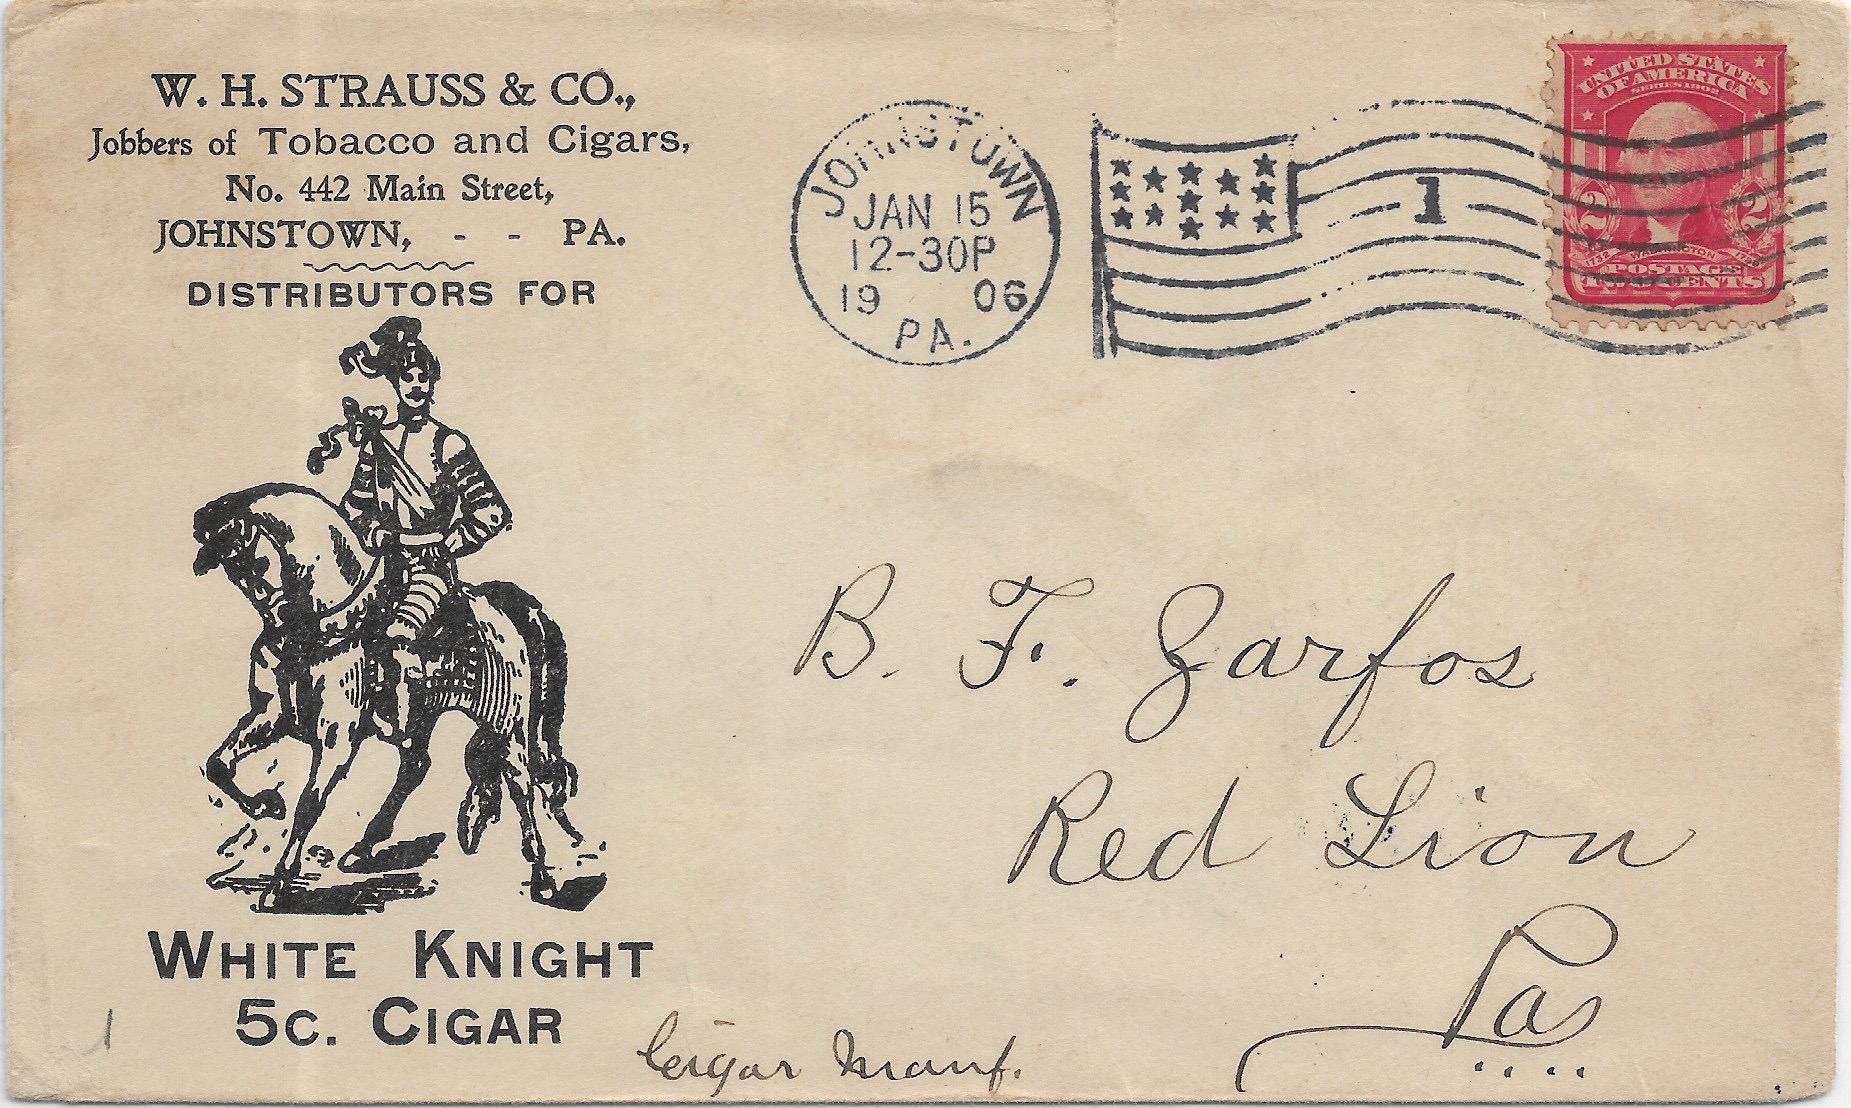 W. H. STRAUSS & CO.,
Jobbers of Tobacco and Cigars,
No. 442 Main Street,
JOHNSTOWN, - - PA.
DISTRIBUTORS FOR
WHITE KNIGHT
5C. CIGAR
JOHNSTOWN
JAN 15
12-30P
19 06
PA.
1
UNITED STATES
OF AMERICA
SERIES 1902
2 2
1732 WASHINGTON 1799
POSTAGE
TWO CENTS
B. F. Zarfos
Red Lion
Pa
Cigar Manf.